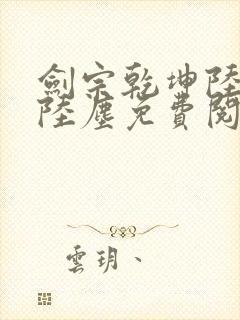 劍宗乾坤陸
陸塵免費閱
雲玥、